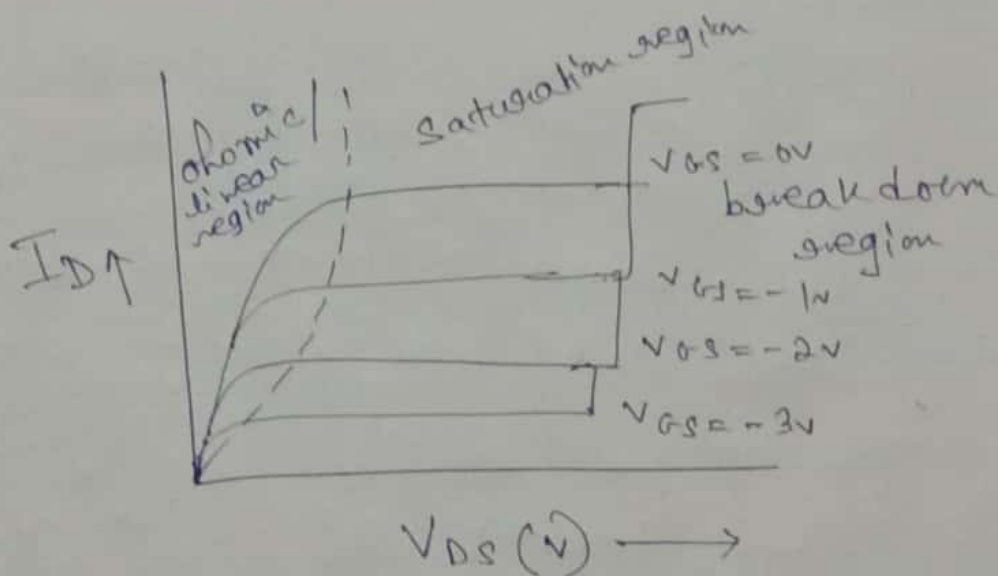 ohomic/
linear
region
saturation region
ID↑
VGS = 0V
breakdown
region
VGS = -1V
VGS = -2V
VGS = -3V
VDS (V) →